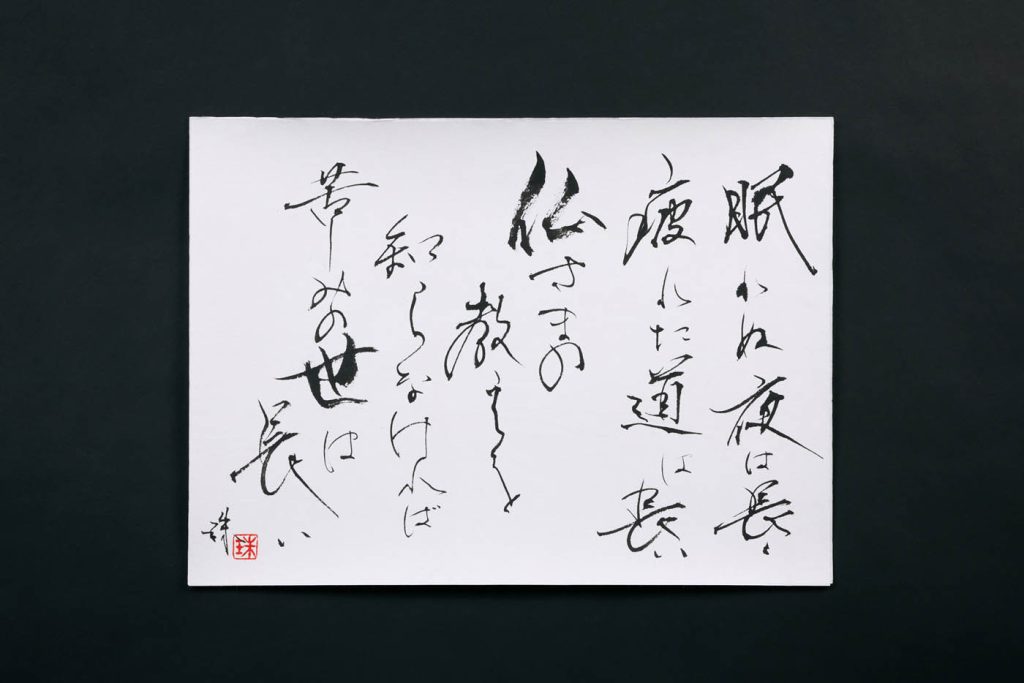 眠れぬ夜は長い
疲れた道は長い
仏さまの
教えを
知らなければ
苦みの世は
長い
珠
珠